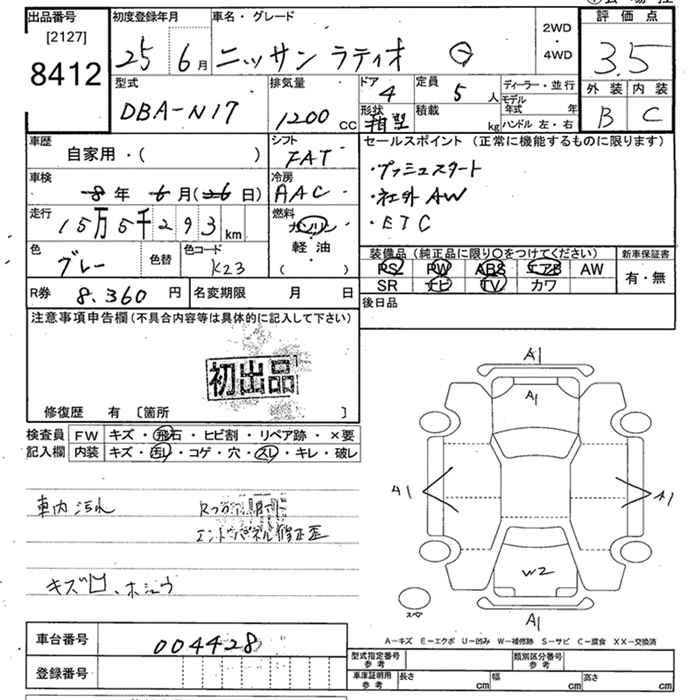 出品番号
[2127]
8412
初度登録年月
25 6月
車名・グレード
ニッサン ラティオ G
2WD
・
4WD
評価点
3.5
外装 内装
B C
型式
DBA-N17
排気量
1200 CC
ドア
4
形状
箱型
定員
5 人
積載
kg
ディーラー・並行
モデル年式 年
ハンドル 左・右
車歴
自家用・( )
シフト
FAT
車検
8年 6月(26日)
冷房
AAC
走行
15万5千293 km
燃料
ガソリン
軽・油
( )
色
グレー
色替
色コード
K23
R券 8,360 円
名変期限 月 日
セールスポイント (正常に機能するものに限ります)
・プッシュスタート
・社外AW
・ETC
装備品 (純正品に限り〇をつけてください)
PS PW ABS エアB AW
SR ナビ TV カワ
新車保証書
有・無
後日品
注意事項申告欄(不具合内容等は具体的に記入して下さい)
初出品
修復歴 有 [箇所 ]
検査員
記入欄
FW キズ・飛石・ヒビ割・リペア跡・×要
内装 キズ・汚レ・コゲ・穴・スレ・キレ・破レ
車内汚れ
エンドパネル修正歪
A1
A1
A1
A1
W2
A1
スペ
車台番号 004428
登録番号
A-キズ E-エクボ U-凹み W-補修跡 S-サビ C-腐食 XX-交換済
型式指定番号
参考
類別区分番号
参考
車庫証明用
参考
長さ cm 幅 cm 高さ cm